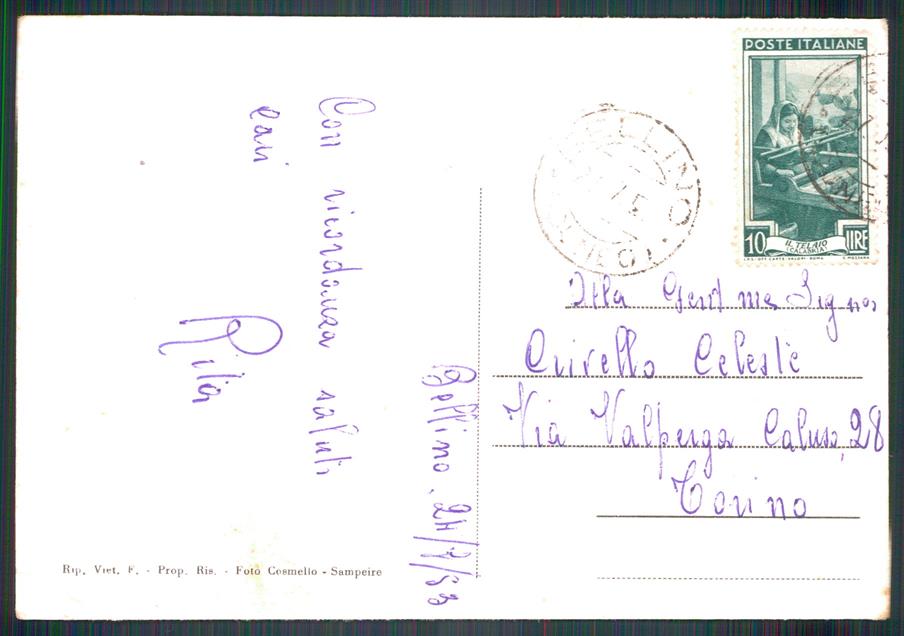 Bellino, 24/7/53
Con ricordanza saluti
cari
Rita
POSTE ITALIANE
10 LIRE
IL TELAIO
(CALABRIA)
I.P.S. OFF. CARTE-VALORI - ROMA
BELLINO
CUNEO
Alla Gent.ma Sig.na
Crivello Celeste
Via Valperga Caluso, 28
Torino
Rip. Viet. F. - Prop. Ris. - Foto Cosmello - Sampeire